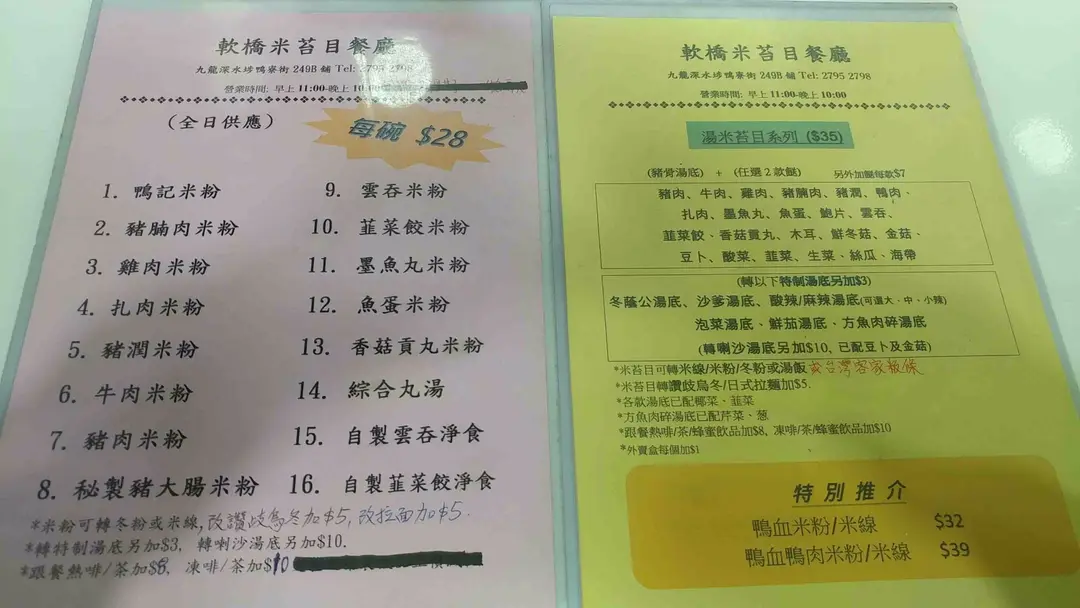 軟橋米苔目餐廳
九龍深水埗鴨寮街 249B 舖 Tel: 2795 2798
營業時間: 早上 11:00-晚上 10:00
(全日供應)
每碗 $28
1. 鴨記米粉
2. 豬腩肉米粉
3. 雞肉米粉
4. 扎肉米粉
5. 豬潤米粉
6. 牛肉米粉
7. 豬肉米粉
8. 秘製豬大腸米粉
9. 雲吞米粉
10. 韮菜餃米粉
11. 墨魚丸米粉
12. 魚蛋米粉
13. 香菇貢丸米粉
14. 綜合丸湯
15. 自製雲吞淨食
16. 自製韮菜餃淨食
*米粉可轉冬粉或米線, 改讚歧烏冬加$5, 改拉面加$5.
*轉特制湯底另加$3, 轉喇沙湯底另加$10.
*跟餐熱啡/茶加$8, 凍啡/茶加$10
軟橋米苔目餐廳
九龍深水埗鴨寮街 249B 舖 Tel: 2795 2798
營業時間: 早上 11:00-晚上 10:00
湯米苔目系列 ($35)
(豬骨湯底) + (任選 2 款餸) 另外加餸每款$7
豬肉、牛肉、雞肉、豬腩肉、豬潤、鴨肉、
扎肉、墨魚丸、魚蛋、鮑片、雲吞、
韮菜餃、香菇貢丸、木耳、鮮冬菇、金菇、
豆卜、酸菜、韮菜、生菜、絲瓜、海帶
(轉以下特制湯底另加$3)
冬蔭公湯底、沙爹湯底、酸辣/麻辣湯底(可選大、中、小辣)
泡菜湯底、鮮茄湯底、方魚肉碎湯底
(轉喇沙湯底另加$10, 已配豆卜及金菇)
*米苔目可轉米線/米粉/冬粉或湯飯 或台灣客家粄條
*米苔目轉讚歧烏冬/日式拉麵加$5.
*各款湯底已配椰菜、韮菜
*方魚肉碎湯底已配芹菜、葱
*跟餐熱啡/茶/蜂蜜飲品加$8, 凍啡/茶/蜂蜜飲品加$10
*外賣盒每個加$1
特別推介
鴨血米粉/米線 $32
鴨血鴨肉米粉/米線 $39